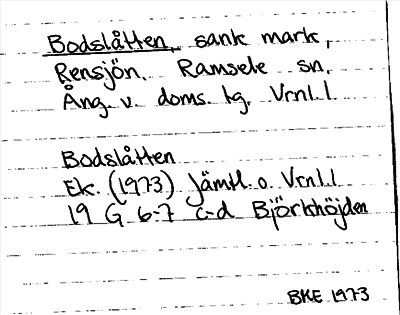 Bodslåtten, sank mark,
Rensjön, Ramsele sn,
Ång. v. doms. tg, Vrnl. l.
Bodslåtten
Ek. (1973) Jämtl. o. Vrnl. l.
19 G 6-7 c-d Björkhöjden
BKE 1973